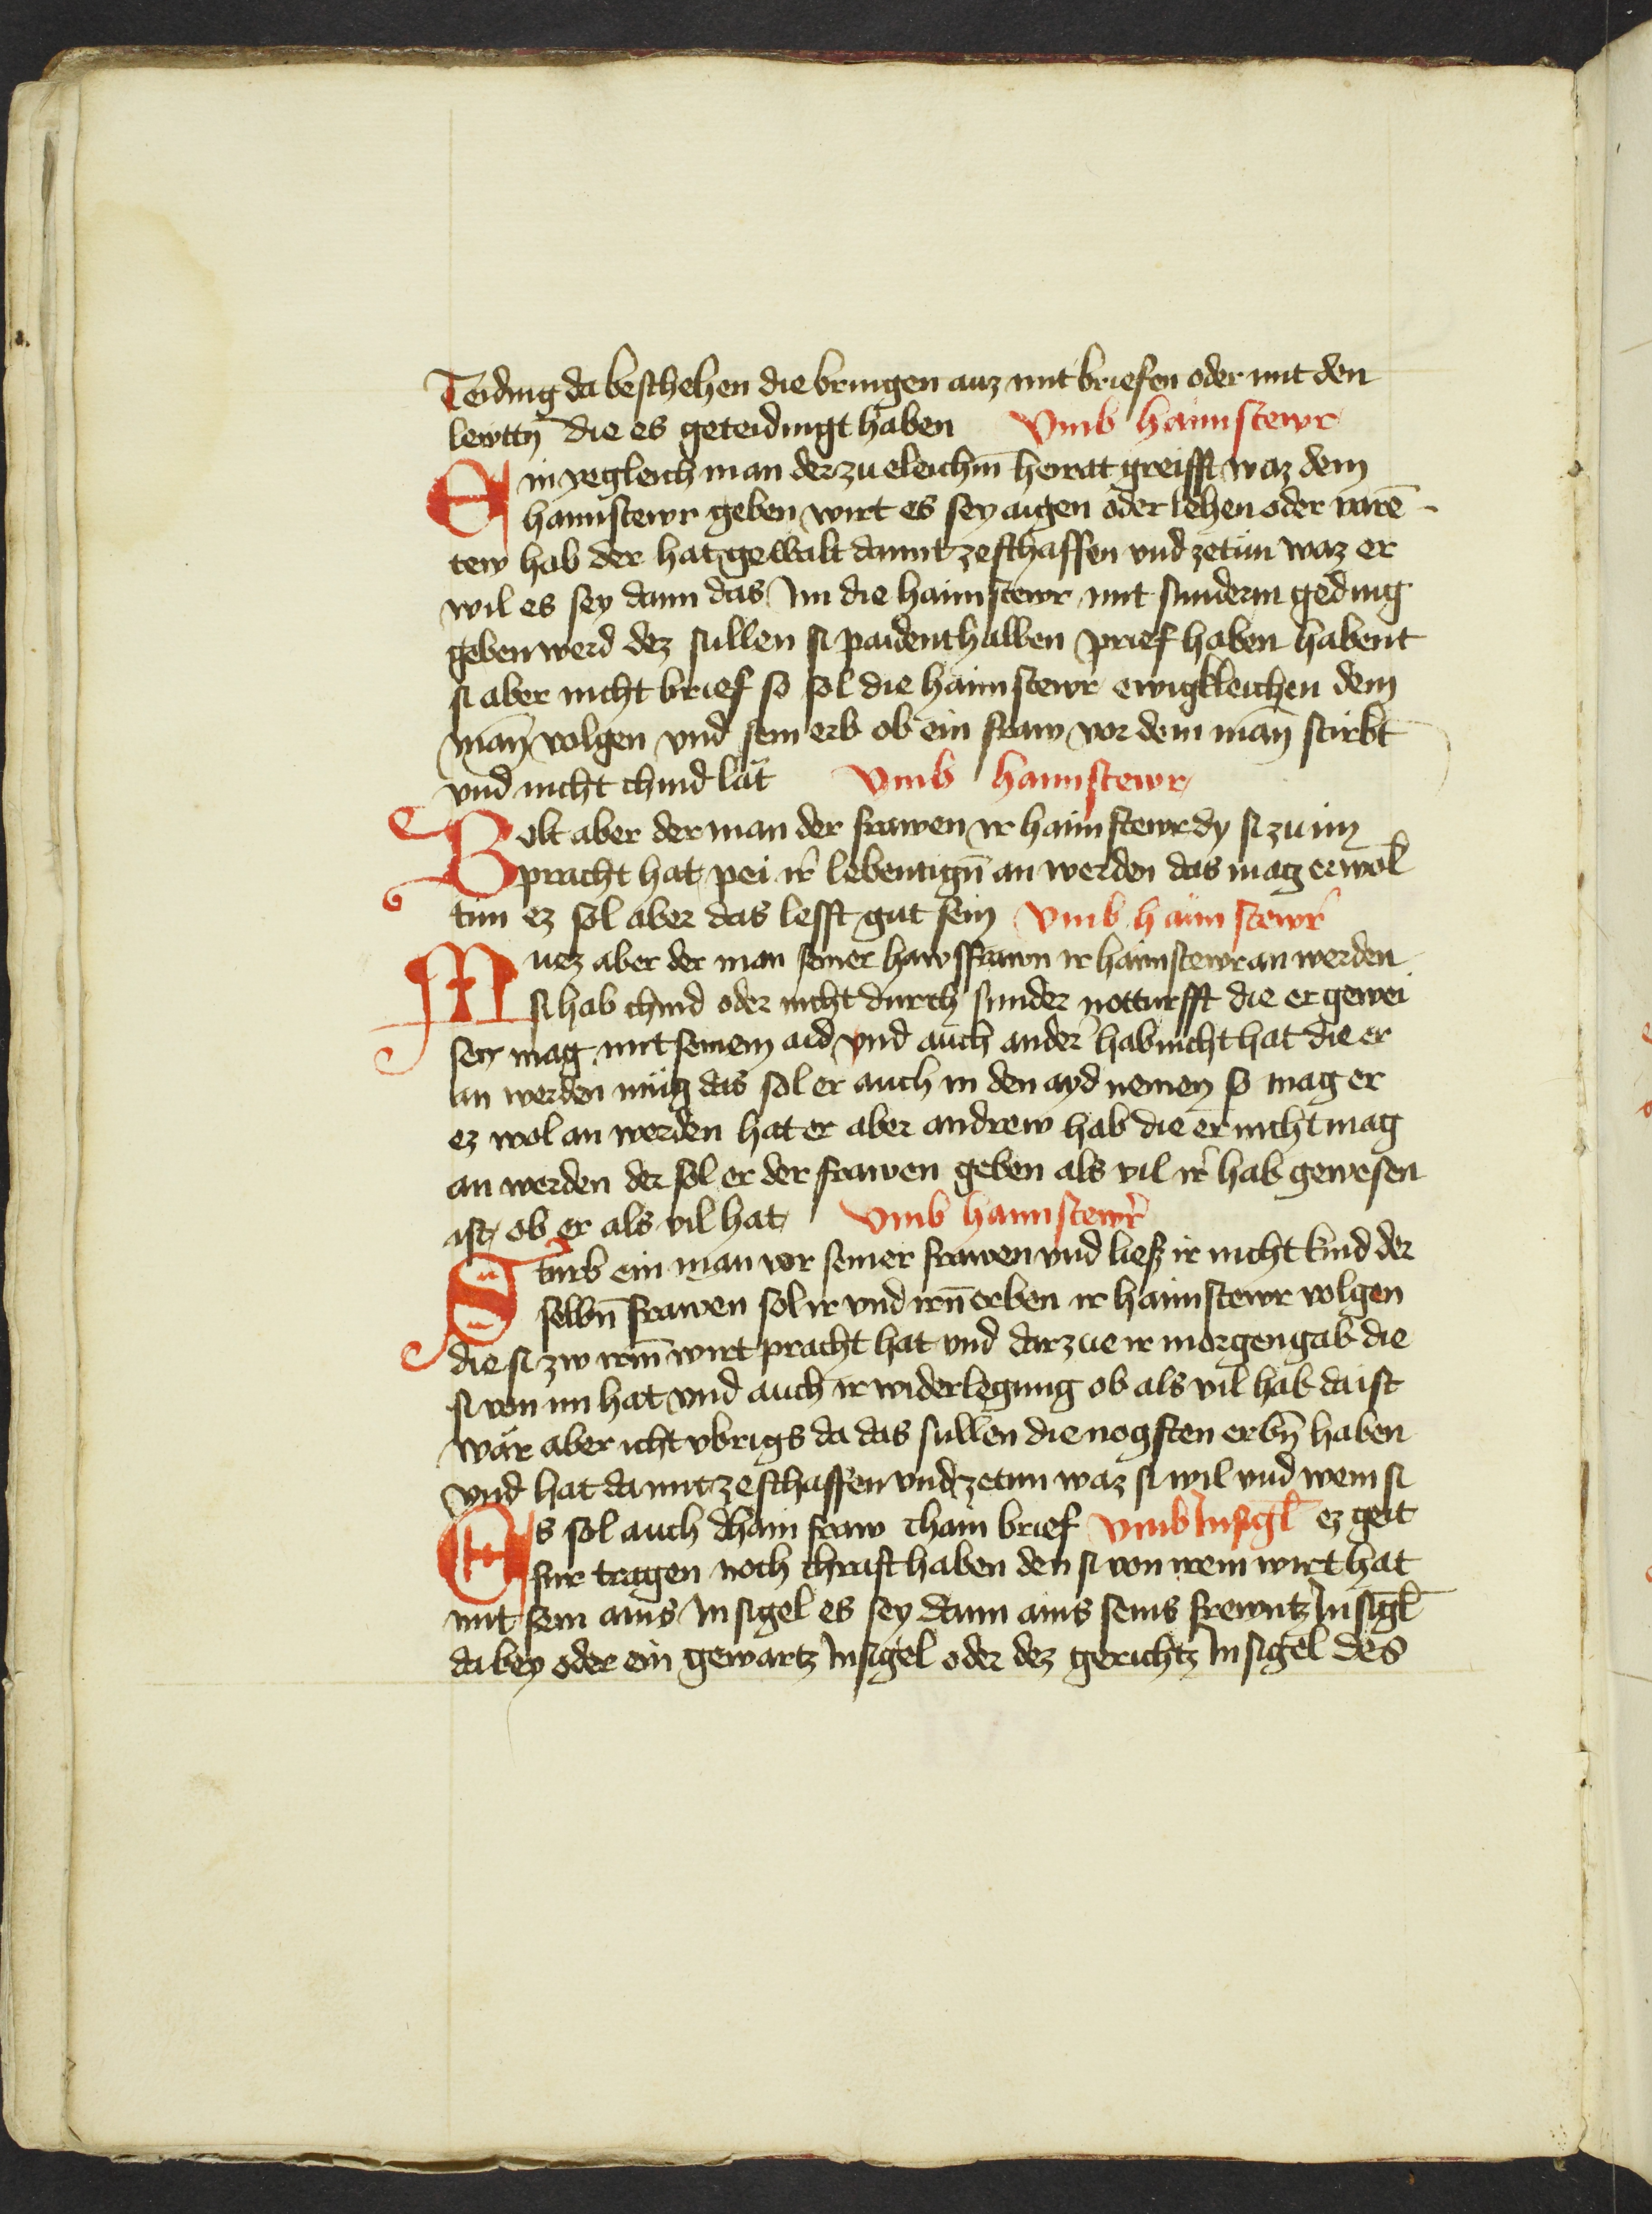 Teiding da beschehen die bringen auz mit briefen oder mit den
lewttn̄ die es geteidingt haben Vmb haimstewr
Ein yegleich man der zu eleichm̄ heirat greifft waz dem
haimstewr geben wirt es sey aigen oder lehen oder varē
tew hab der hat gewalt damit zeschaffen vnd zetün waz er
wil es sey dann das Im die haimstewr mit sunderm geding
geben werd dez sullen si paidenthalben prief haben habent
si aber nicht brief so sol die haimstewr ewigkleichen dem
man̄ volgen vnd seim erb ob ein fraw vor dem man̄ stirbt
vnd nicht chind lat̄ Vmb haimstewr
Wolt aber der man der frawen ir haimstewr dy si zu im
pracht hat pei ir̄ lebentign̄ an werden das mag er wol
tün ez sol aber das lesst gut sein Vmb haimstewr̄
Muez aber der man seiner hawsfrawn ir haimstewr an werden
si hab chind oder nicht durch sunder notturfft die er gewei
sen mag mit seinem aid vnd auch ander̄ hab nicht hat die er
an werden müg das sol er auch in den ayd nemen so mag er
ez wol an werden hat er aber andrew hab die er nicht mag
an werden der sol er der frawen geben als vil ir̄ hab gewesen
ist ob er als vil hat Vmb haimstewr̄
Stürb ein man vor seiner frawen vnd liesz ir nicht kind der
selbn̄ frawen sol ir vnd irn̄ erben ir haimstewr volgen
die si zw irm̄ wirt pracht hat vnd darzue ir morgengab die
si von im hat vnd auch ir widerlegung ob als vil hab da ist
wär aber icht vbrigs da das sullen die nogsten erbn̄ haben
vnd hat damit zeschaffen vnd zetun waz si wil vnd wem si
Es sol auch dhain fraw chain brief Vmb Insigl̄ ez geit
für tragen noch chraft haben den si von irem wirt hat
mit sein ains Insigel es sey dann ains seins frewntz Insigl̄
dabey oder ein gewartz Insigel oder dez gerichtz Insigel des